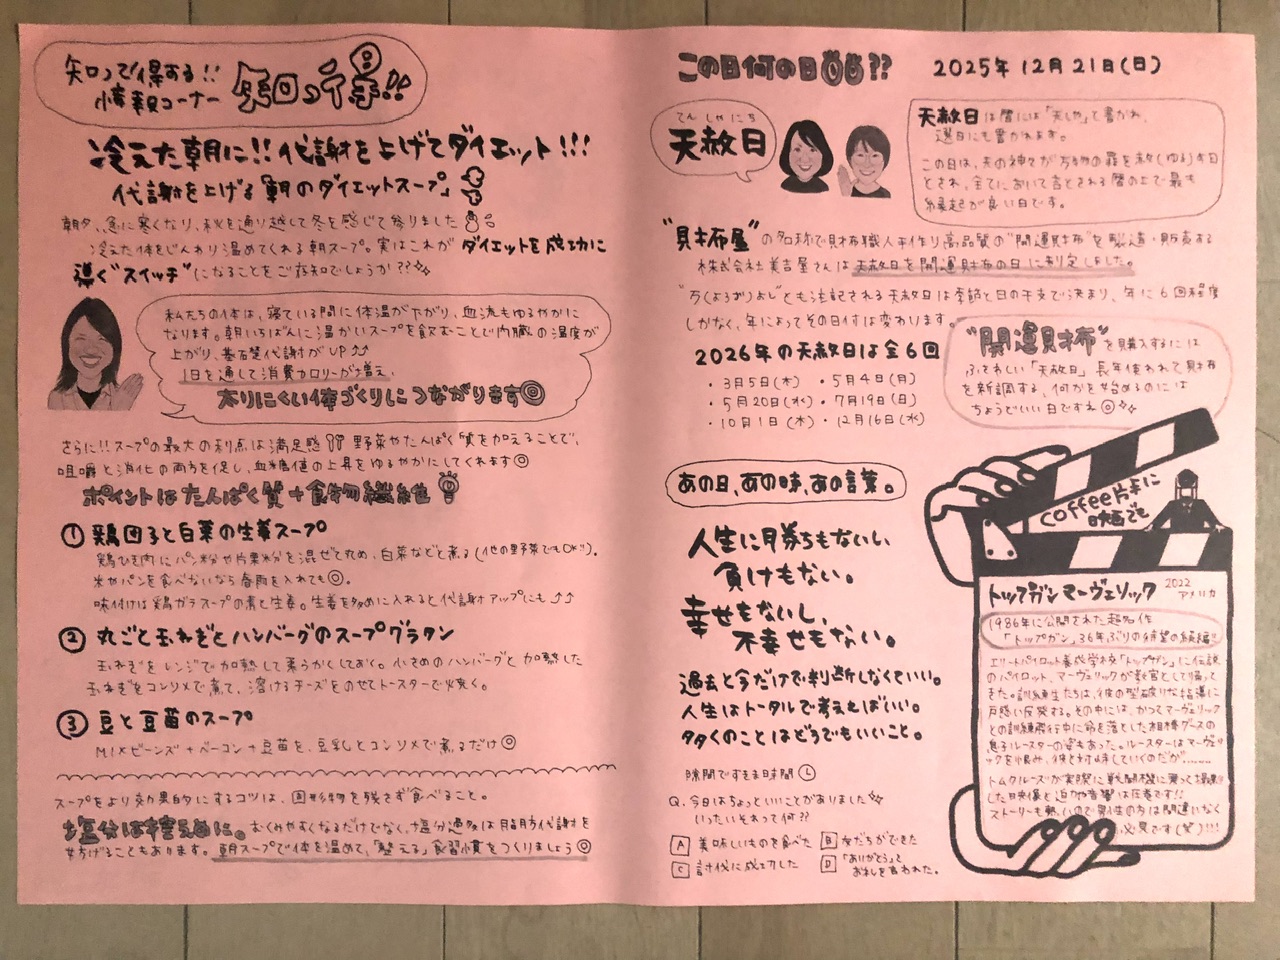 知って得する!!
情報コーナー
知っ得!!
冷えた朝に!!代謝を上げてダイエット!!!
代謝を上げる「朝のダイエットスープ」
朝夕、急に寒くなり、秋を通り越して冬を感じて参りました
冷えた体をじんわり温めてくれる朝スープ。実はこれがダイエットを成功に
導く"スイッチ"になることをご存知でしょうか??
私たちの体は、寝ている間に体温が下がり、血流もゆるやかに
なります。朝いちばんに温かいスープを飲むことで内臓の温度が
上がり、基礎代謝がUP↑↑
1日を通して消費カロリーが増え、
太りにくい体づくりにつながります◎
さらに!!スープの最大の利点は満足感 野菜やたんぱく質を加えることで、
咀嚼と消化の両方を促し、血糖値の上昇をゆるやかにしてくれます◎
ポイントはたんぱく質+食物繊維
① 鶏団子と白菜の生姜スープ
鶏ひき肉にパン粉や片栗粉を混ぜて丸め、白菜などと煮る(他の野菜でもOK!!)。
米やパンを食べないなら春雨を入れても◎。
味付けは鶏ガラスープの素と生姜。生姜を多めに入れると代謝アップにも↑↑
② 丸ごと玉ねぎとハンバーグのスープグラタン
玉ねぎをレンジで加熱して柔らかくしておく。小さめのハンバーグと加熱した
玉ねぎをコンソメで煮て、溶けるチーズをのせてトースターで焼く。
③ 豆と豆苗のスープ
MIXビーンズ+ベーコン+豆苗を、豆乳とコンソメで煮るだけ◎
スープをより効果的にするコツは、固形物を残さず食べること。
塩分は控えめに。むくみやすくなるだけでなく、塩分過多は脂肪代謝を
妨げることもあります。朝スープで体を温めて、「整える」食習慣をつくりましょう◎
この日何の日??
2025年12月21日(日)
てんしゃにち
天赦日
天赦日は暦には「天しゃ」と書かれ、
選日にも書かれます。
この日は、天の神々が万物の罪を赦(ゆる)す日
とされ、全てにおいて吉とされる暦の上で最も
縁起が良い日です。
"財布屋"の名称で財布職人手作り高品質の"開運財布"を製造・販売する
株式会社美吉屋さんは天赦日を開運財布の日に制定しました。
"万(よろず)よし"とも注記される天赦日は季節と日の干支で決まり、年に6回程度
しかなく、年によってその日付は変わります。
2026年の天赦日は全6回
・3月5日(木) ・5月4日(月)
・5月20日(水) ・7月19日(日)
・10月1日(木) ・12月16日(水)
"開運財布"を購入するには
ふさわしい「天赦日」長年使われて財布
を新調する、何かを始めるのには
ちょうどいい日ですね◎
あの日、あの時、あの言葉。
人生に勝ちもないし、
負けもない。
幸せもないし、
不幸せもない。
過去と今だけで判断しなくていい。
人生はトータルで考えればいい。
多くのことはどうでもいいこと。
隙間ですきま時間
Q. 今日はちょっといいことがありました
いったいそれって何??
A 美味しいものを食べた B 友だちができた
C 討伐に成功した D 「ありがとう」と
お礼を言われた。
coffee片手に
映画でも
トップガン マーヴェリック 2022 アメリカ
1986年に公開された超名作
「トップガン」36年ぶりの待望の続編!!
エリートパイロット養成学校「トップガン」に伝説
のパイロット、マーヴェリックが教官として帰って
きた。訓練生たちは、彼の型破りな指導に
戸惑い反発する。その中には、かつてマーヴェリック
との訓練飛行中に命を落とした相棒グースの
息子ルースターの姿もあった。ルースターはマーヴェリ
ックを恨み、彼と対峙していくのだが………
トムクルーズが実際に戦闘機に乗って撮影
した映像と迫力や音響は圧巻です!!
ストーリーも熱いので男性の方は間違いなく
必見です(笑)!!!